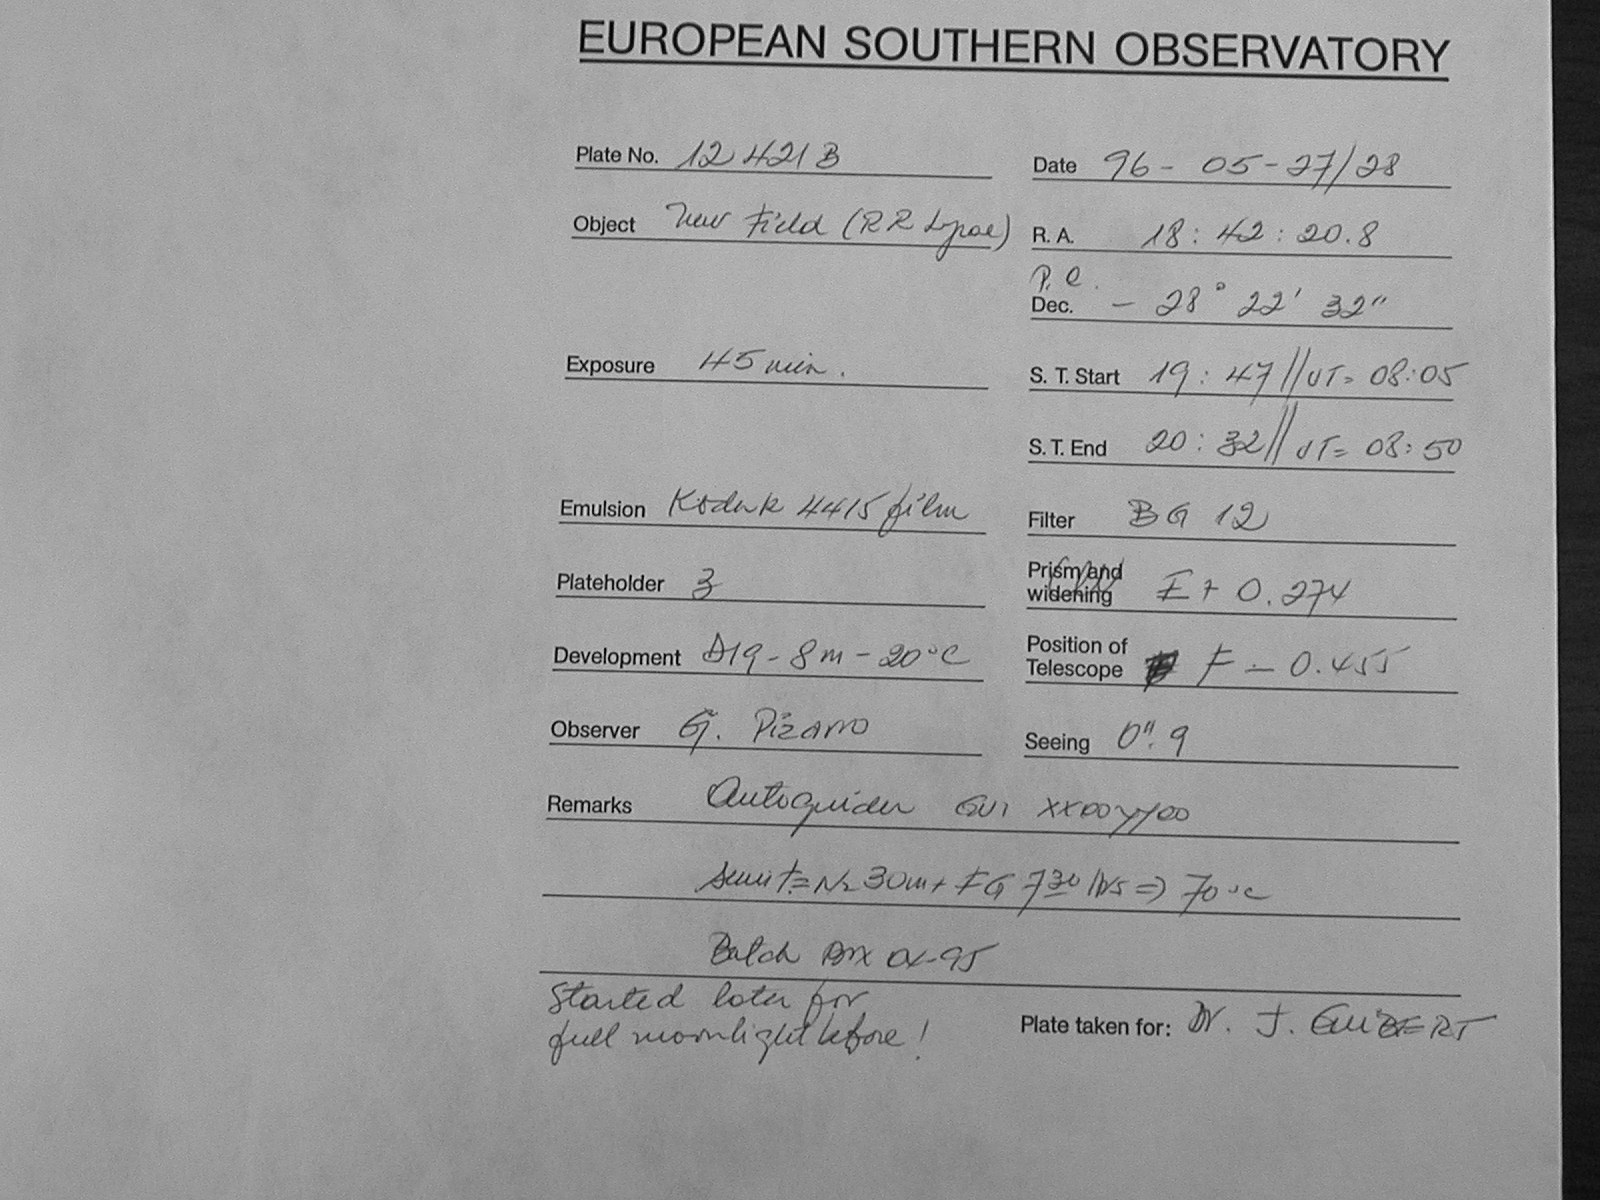 EUROPEAN SOUTHERN OBSERVATORY
Plate No. 12421B
Date 96-05-27/28
Object New Field (RR Lyrae)
R. A. 18 : 42 : 20.8
Dec. - 28° 22' 32"
Exposure 45 min.
S. T. Start 19 : 47 // UT= 08:05
S. T. End 20 : 32 // UT= 08:50
Emulsion Kodak 4415 film
Filter BG 12
Plateholder 3
Prism and
widening 0.274
Development D19 - 8m - 20°C
Position of
Telescope F - 0.455
Observer G. Pizarro
Seeing 0".9
Remarks Autoguider XX00YY00
N2 30m + FG 7 30 hrs => 70°C
Batch 04-95
Started later for
full moonlight before!
Plate taken for: Dr. J. GUIBERT